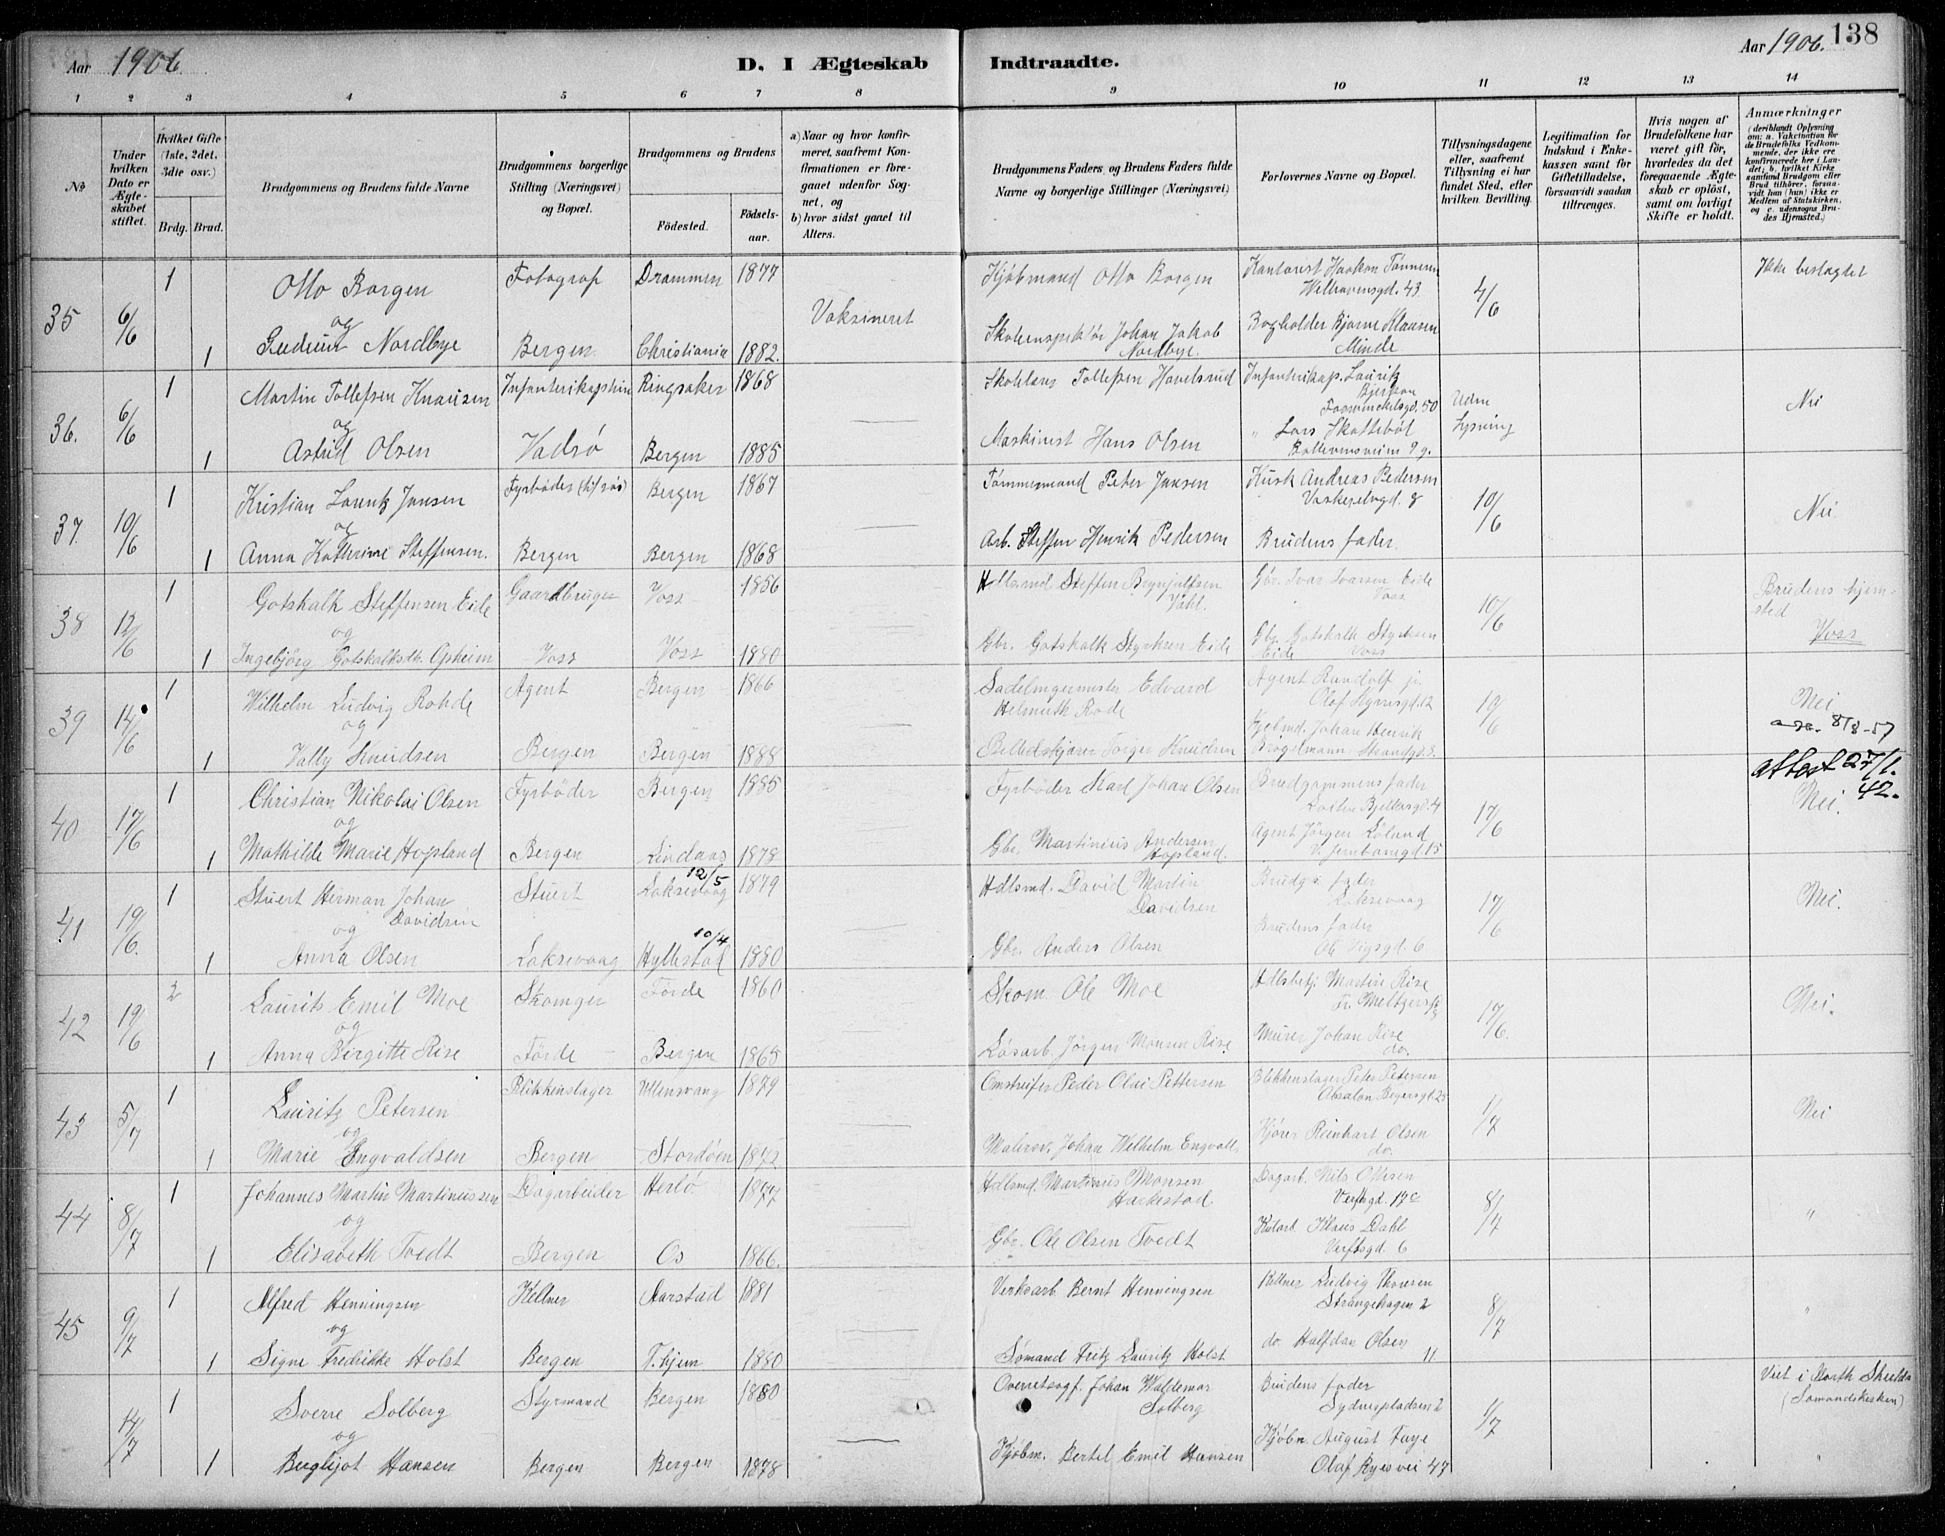 Aar 1906.
D. I Ægteskab Indtraadte.
Aar 1906. 138
1 2 3 4 5 6 7 8 9 10 11 12 13 14
No
Under hvilken Dato er Ægteskabet stiftet.
Hvilket Gifte (1ste, 2det, 3die osv.)
Brdg. Brud.
Brudgommens og Brudens fulde Navne
Brudgommens borgerlige Stilling (Næringsvei) og Bopæl.
Brudgommens og Brudens
Fødested.
Fødselsaar.
a) Naar og hvor konfirmeret, saafremt Konfirmationen er foregaaet udenfor Sognet, og
b) hvor sidst gaaet til Alters.
Brudgommens Faders og Brudens Faders fulde Navne og borgerlige Stillinger (Næringsvei)
Forlovernes Navne og Bopæl.
Tillysningsdagene eller, saafremt Tillysning ei har fundet Sted, efter hvilken Bevilling.
Legitimation for Indskud i Enkekassen samt for Giftetilladelse, forsaavidt saadan tiltrænges.
Hvis nogen af Brudefolkene har været gift før, hvorledes da det foregaaende Ægteskab er opløst, samt om lovligt Skifte er holdt.
Anmærkninger
(deriblandt Oplysning om: a. Vakcination for de Brudefolks Vedkommende, der ikke ere konfirmerede her i Landet; b. hvilket Kirkesamfund Brudgom eller Brud tilhører, forsaavidt han (hun) ikke er Medlem af Statskirken, og c. udensogns Brudes Hjemsted.)
35 6/6 1 Otto Borgen Fotograf Drammen 1877 Kjøbmand Otto Borgen Kantorist Haakon Tønnesen Welhavensgd. 43 4/6 Ikke beslægtet
og Vaksineret
1 Gudrun Nordbye Bergen. Christiania 1882. Skoleinspektør Johan Jakob Nordbye. Bogholder Bjarne Klausen Minde
36. 6/6 1 Martin Tollefsen Knausen Infanterikaptein Ringsaker 1868 Tollefsen Infanterikap. Lauritz Fosswinckelsgd. 50 Uden Lysning Nei
og
1 Astrid Olsen Vadsø Bergen 1885 Maskinist Hans Olsen " Lars 9 g.
37. 10/6 1 Kristian Lauritz Jansen Fyrbøder Bergen 1867 Tømmermand Peter Jansen Kusk Andreas Pedersen 8 10/6 Nei
og
1 Anna Kathrine Steffensen. Bergen Bergen 1868 Arb. Steffen Henrik Pedersen Brudens fader.
38 12/6 1 Gotskalk Steffensen Eide Gaardbruger Voss 1856 Hdlsmd Steffen Brynjulfsen Gbr. Ivar Ivarsen Eide Voss 10/6 Brudens hjemsted Voss
og
1 Ingebjörg Gotskalksdtr. Opheim Voss Voss 1880 Gbr. Gotskalk Styrksen Eide Gbr. Gotskalk Styrksen Eide Voss
39 14/6 1 Wilhelm Ludvig Rohde Agent Bergen 1866 Sadelmagermester Edvard Helmuth Rode Agent Randolf jr. Olaf Kyrresgd. 12 10/6 Nei
og 8/8-57
1 Vally Knudsen Bergen Bergen 1888 Billedskjærer Torger Knudsen Kjøbmd. Johan Henrik Brøgelmann Strandgd.
40 17/6 1 Christian Nikolai Olsen Fyrbøder Bergen 1885 Fyrbøder Karl Johan Olsen Brudgommens fader 4 17/6 Attest 27/1. 42. Nei.
og
1 Mathilde Marie Hopland Bergen Lindaas 1878 Gbr. Martinius Andersen Hopland. Agent Jörgen Löland V. Jernbanegd. 15
41 19/6. 1 Stuert Herman Johan Davidsen Stuert 12/5 Laksevaag 1879 Hdlsmd. David Martin Davidsen Brudg. fader Laksevaag 17/6 Nei.
og
1 Anna Olsen Laksevaag 10/4 Hyllestad 1880 Gbr. Anders Olsen Brudens fader Ole Vigsgd. 6
42 19/6 2 Laurits Emil Moe Skomager Førde 1860 Skom. Ole Moe Martin Rise 17/6. Nei.
og
1 Anna Birgitte Rise Førde Bergen 1865 Løsarb. Jørgen Monsen Rise Murer Johan Rise do.
43 5/7 1 Lauritz Petersen Blikkenslager Ullensvang 1879 Omstreifer Peder Olai Pettersen Blikkenslager Peter Petersen Absalon Beyersgd. 25 1/7 Nei
og
1 Marie Engvaldsen Bergen Stordöen 1872 Johan Wilhelm Engvall. Kjører Reinhart Olsen do.
44 8/7 1 Johannes Martin Martinussen Dagarbeider Herlö 1877 Hdlsmd. Martinus Monsen Dagarb. Nils Olsen Verftsgd. 17c 8/7 "
og
1 Elisabeth Tvedt Bergen Os 1866. Gbr. Ole Olsen Tvedt Klaus Dahl Verftsgd. 6
45 9/7 1 Alfred Henningsen Kellner Aarstad 1881 Verksarb Bernt Henningsen Kellner Ludvig Strangehagen 2 8/7 "
og
1 Signe Fredrikke Holst Bergen T.hjem 1880 Sømand Fritz Lauritz Holst do. Halfdan Olsen 11
14/7 1 Sverre Solberg Styrmand Bergen 1880 Overretssagf. Johan Waldemar Solberg Brudens fader Sydnespladsen 2 1/7 Viet i North Shields (Sømandskirken)
og
1 Bergljot Hansen Bergen Bergen 1878 Kjøbm. Bertel Emil Hansen Kjøbm. August Faye Olaf Ryesvei 47